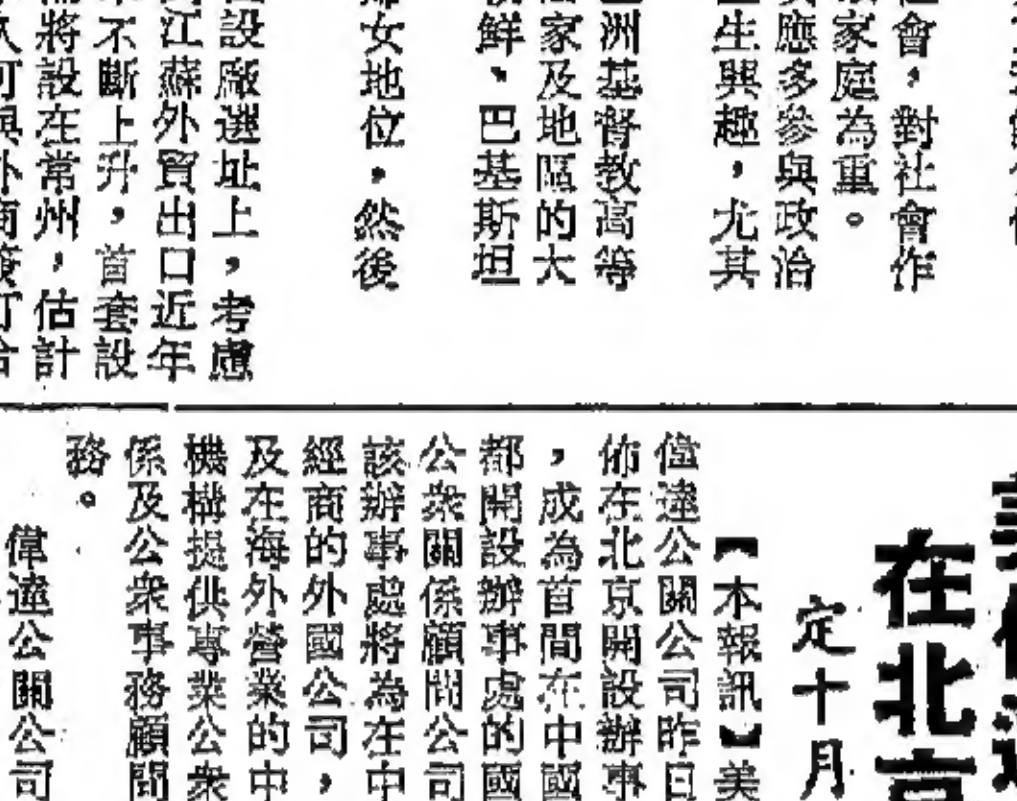 社會，對社會作
家庭為重。
應多參與政治
生興趣，尤其
洲基督教高等
家及地區的大
鮮、巴基斯坦
女地位，然後
設廠選址上，考慮
江蘇外貿出口近年
不斷上升，首套設
將設在常州，估計
在北京
定十月
【本報訊】美
偉達公關公司昨日
佈在北京開設辦事
，成為首間在中國
都開設辦事處的國
公眾關係顧問公司
該辦事處將為在中
經商的外國公司，
及在海外營業的中
機構提供專業公眾
係及公眾事務顧問
務。
偉達公關公司